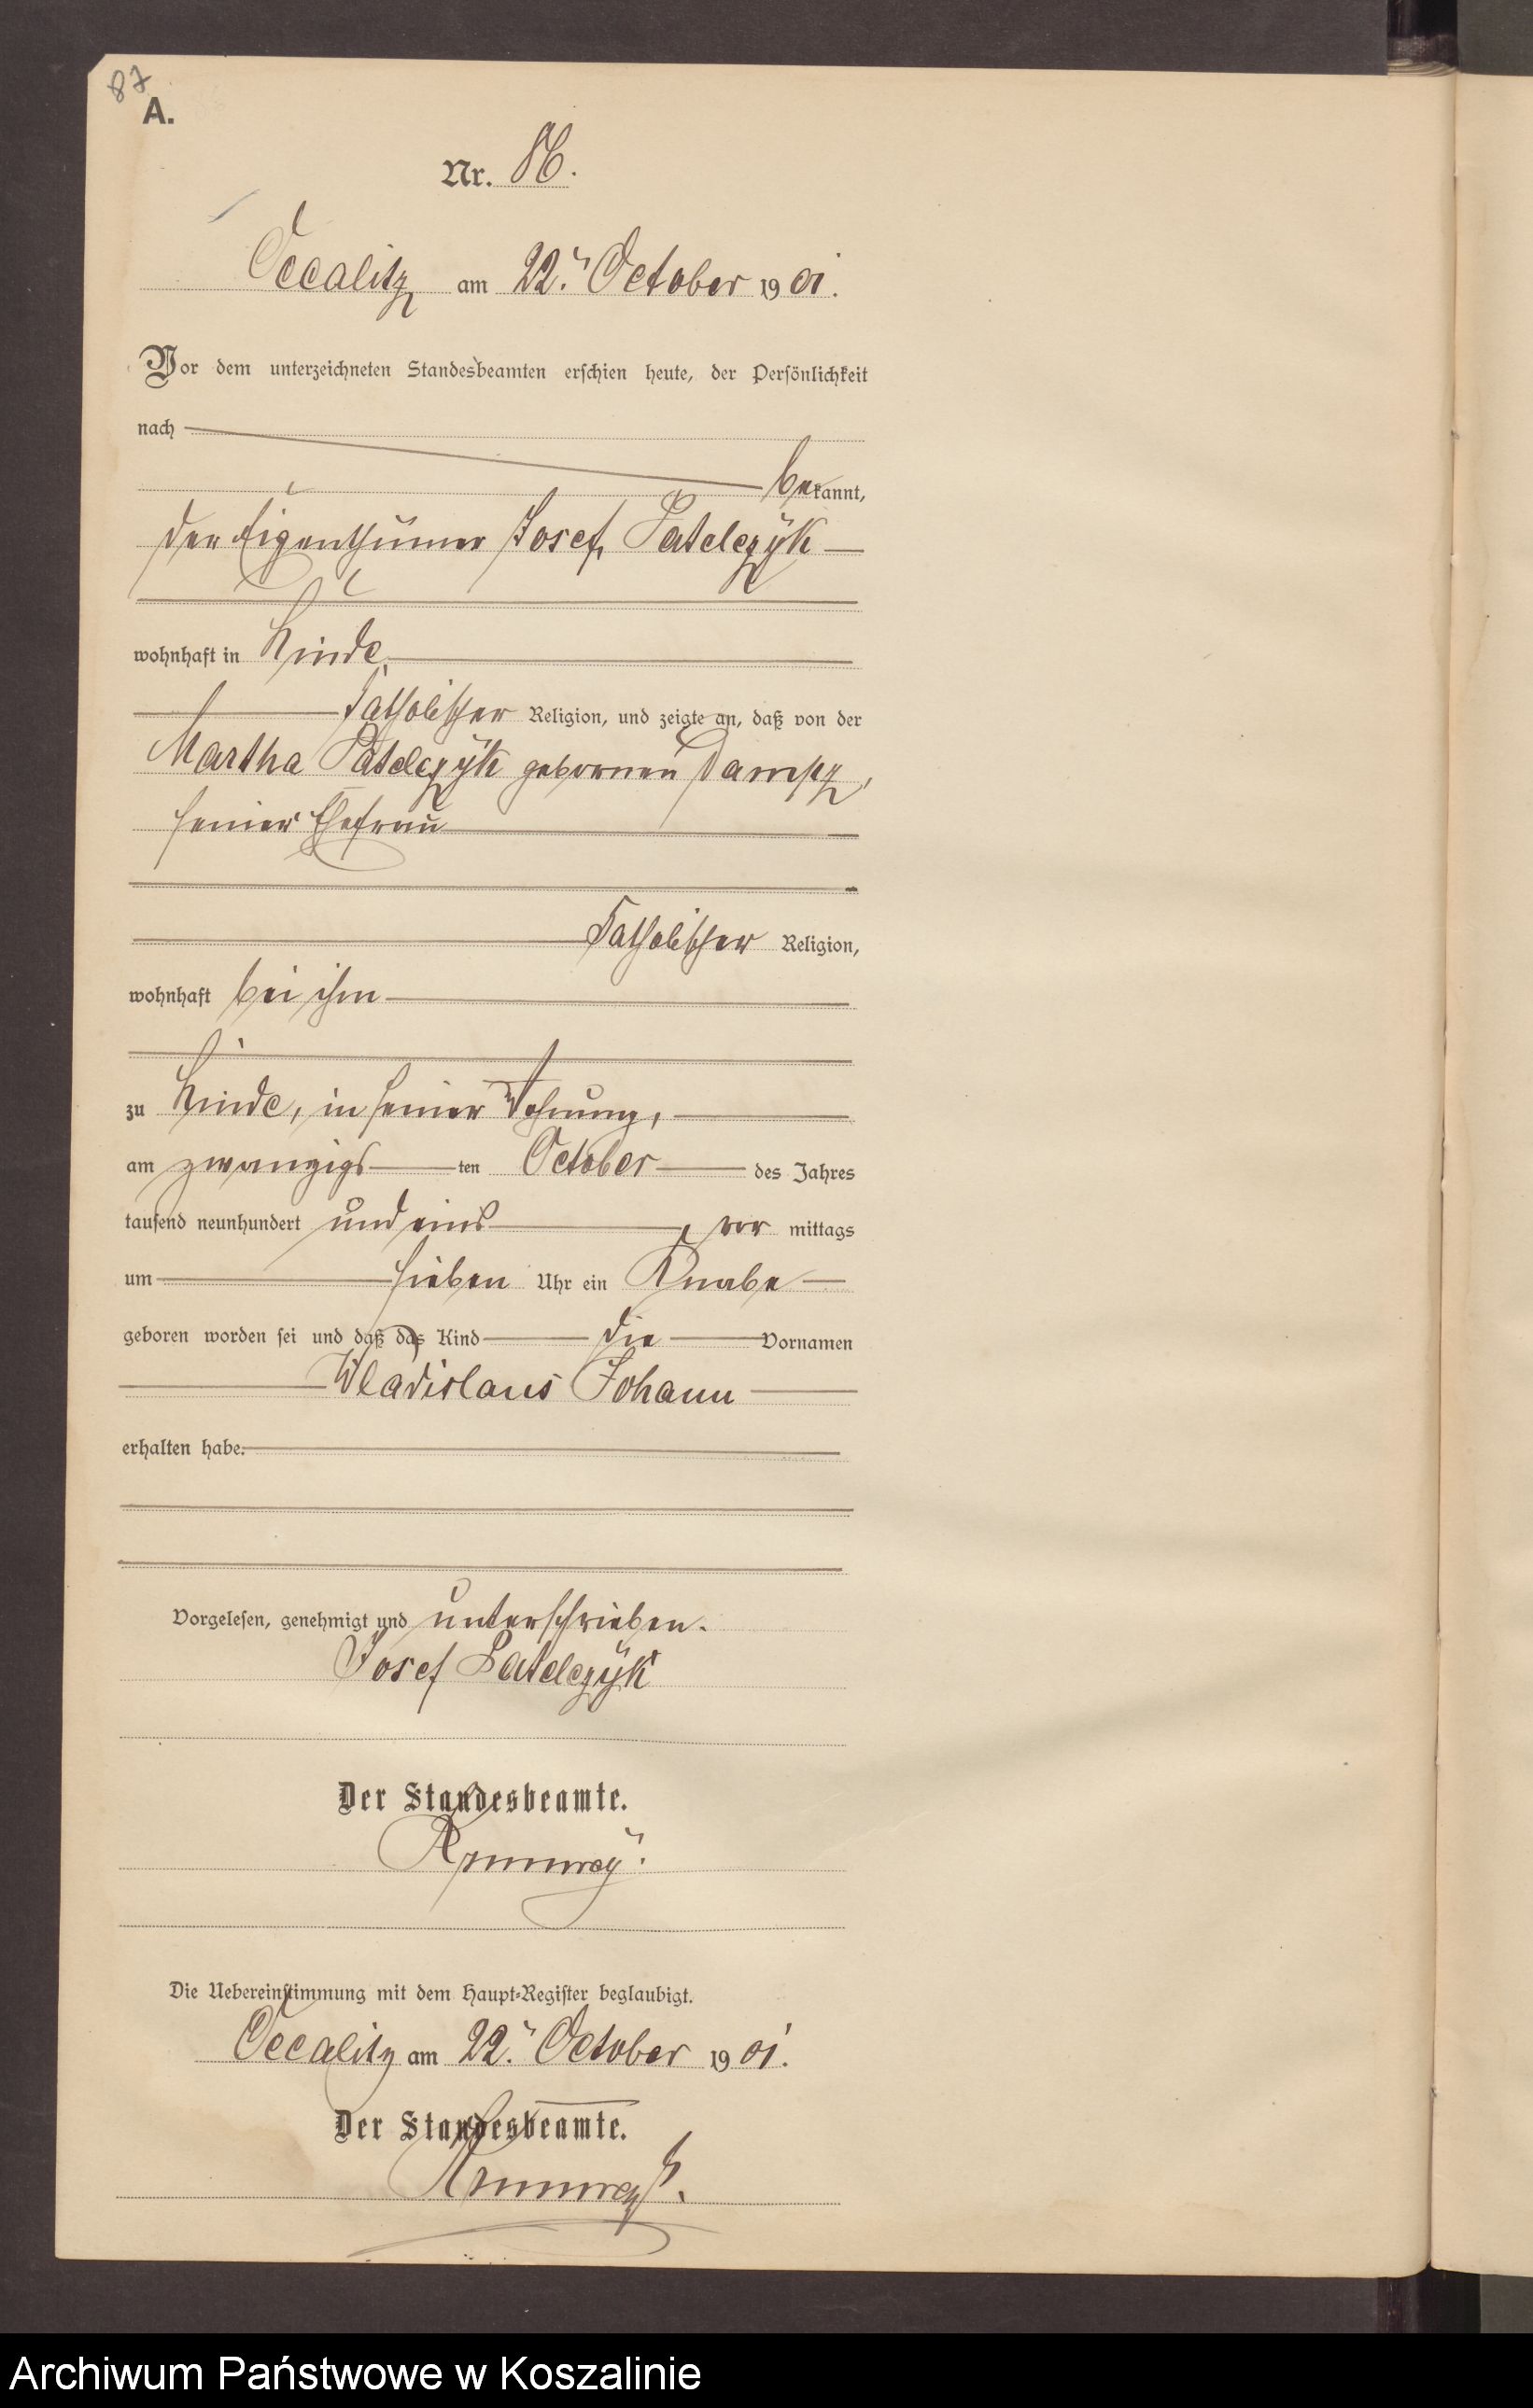 87
A.
Nr. 86.
Occalitz am 22. October 1901.
Vor dem unterzeichneten Standesbeamten erschien heute, der Persönlichkeit
nach
bekannt,
der Eigenthümer Josef Patelczÿk
wohnhaft in Linde
katholischer Religion, und zeigte an, daß von der
Martha Patelczÿk geborenen
seiner Ehefrau
katholischer Religion,
wohnhaft bei ihm
zu Linde, in seiner Wohnung,
am zwanzigs ten October des Jahres
tausend neunhundert und eins, vor mittags
um sieben Uhr ein Knabe
geboren worden sei und daß das Kind die Vornamen
Wladislaus Johann
erhalten habe.
Vorgelesen, genehmigt und unterschrieben.
Josef Patelczÿk
Der Standesbeamte.
Die Uebereinstimmung mit dem Haupt-Register beglaubigt.
Occalitz am 22. October 1901.
Der Standesbeamte.
Archiwum Państwowe w Koszalinie